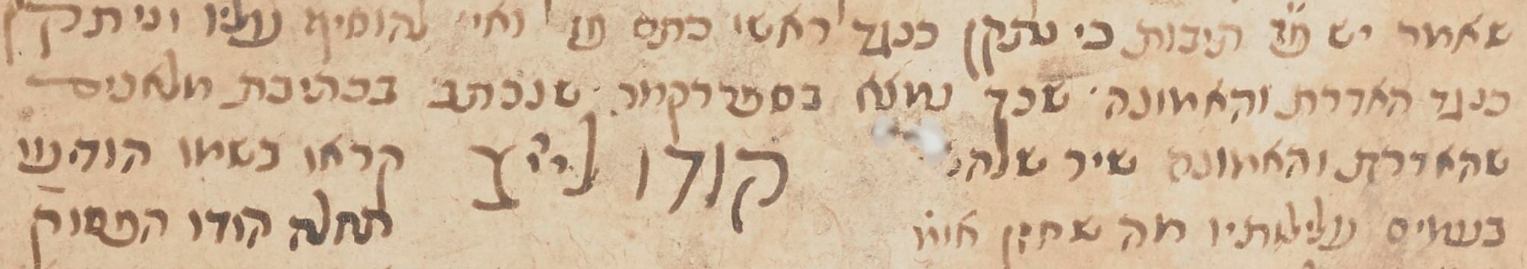 שאמר יש פ״ז תיבות כי נתקן כנגד ראשי כתם פז ואין להוסיף עליו וניתקן
כנגד האדרת והאמונה שכך נמצא בספר רקמה שנכתב בכתיבת מלאכים
שהאדרת והאמונה שיר שלהם הודו לייי קראו בשמו הודיעו
בעמים עלילותיו מה שחזן אומר תחלה הודו הפסוק